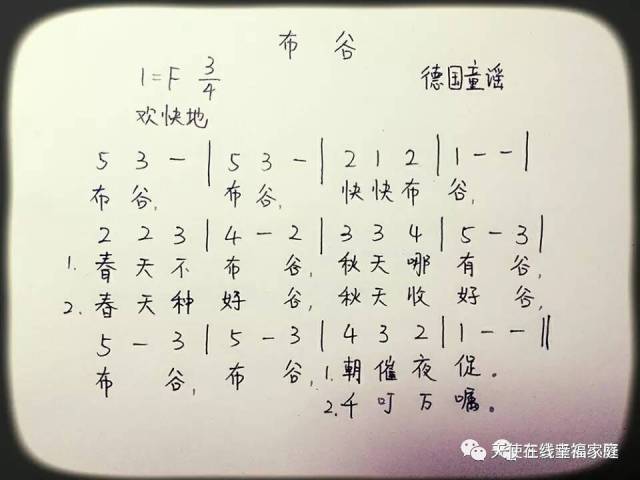 布 谷
1=F 3/4 德国童谣
欢快地
5 3 - | 5 3 - | 2 1 2 | 1 - - |
布 谷, 布 谷, 快快布 谷,
2 2 3 | 4 - 2 | 3 3 4 | 5 - 3 |
1. 春 天 不 布 谷, 秋天 哪 有 谷,
2. 春 天 种 好 谷, 秋天 收 好 谷,
5 - 3 | 5 - 3 | 4 3 2 | 1 - - ‖
布 谷, 布 谷, 1. 朝 催 夜 促。
2. 千 叮 万 嘱。
天使在线幸福家庭